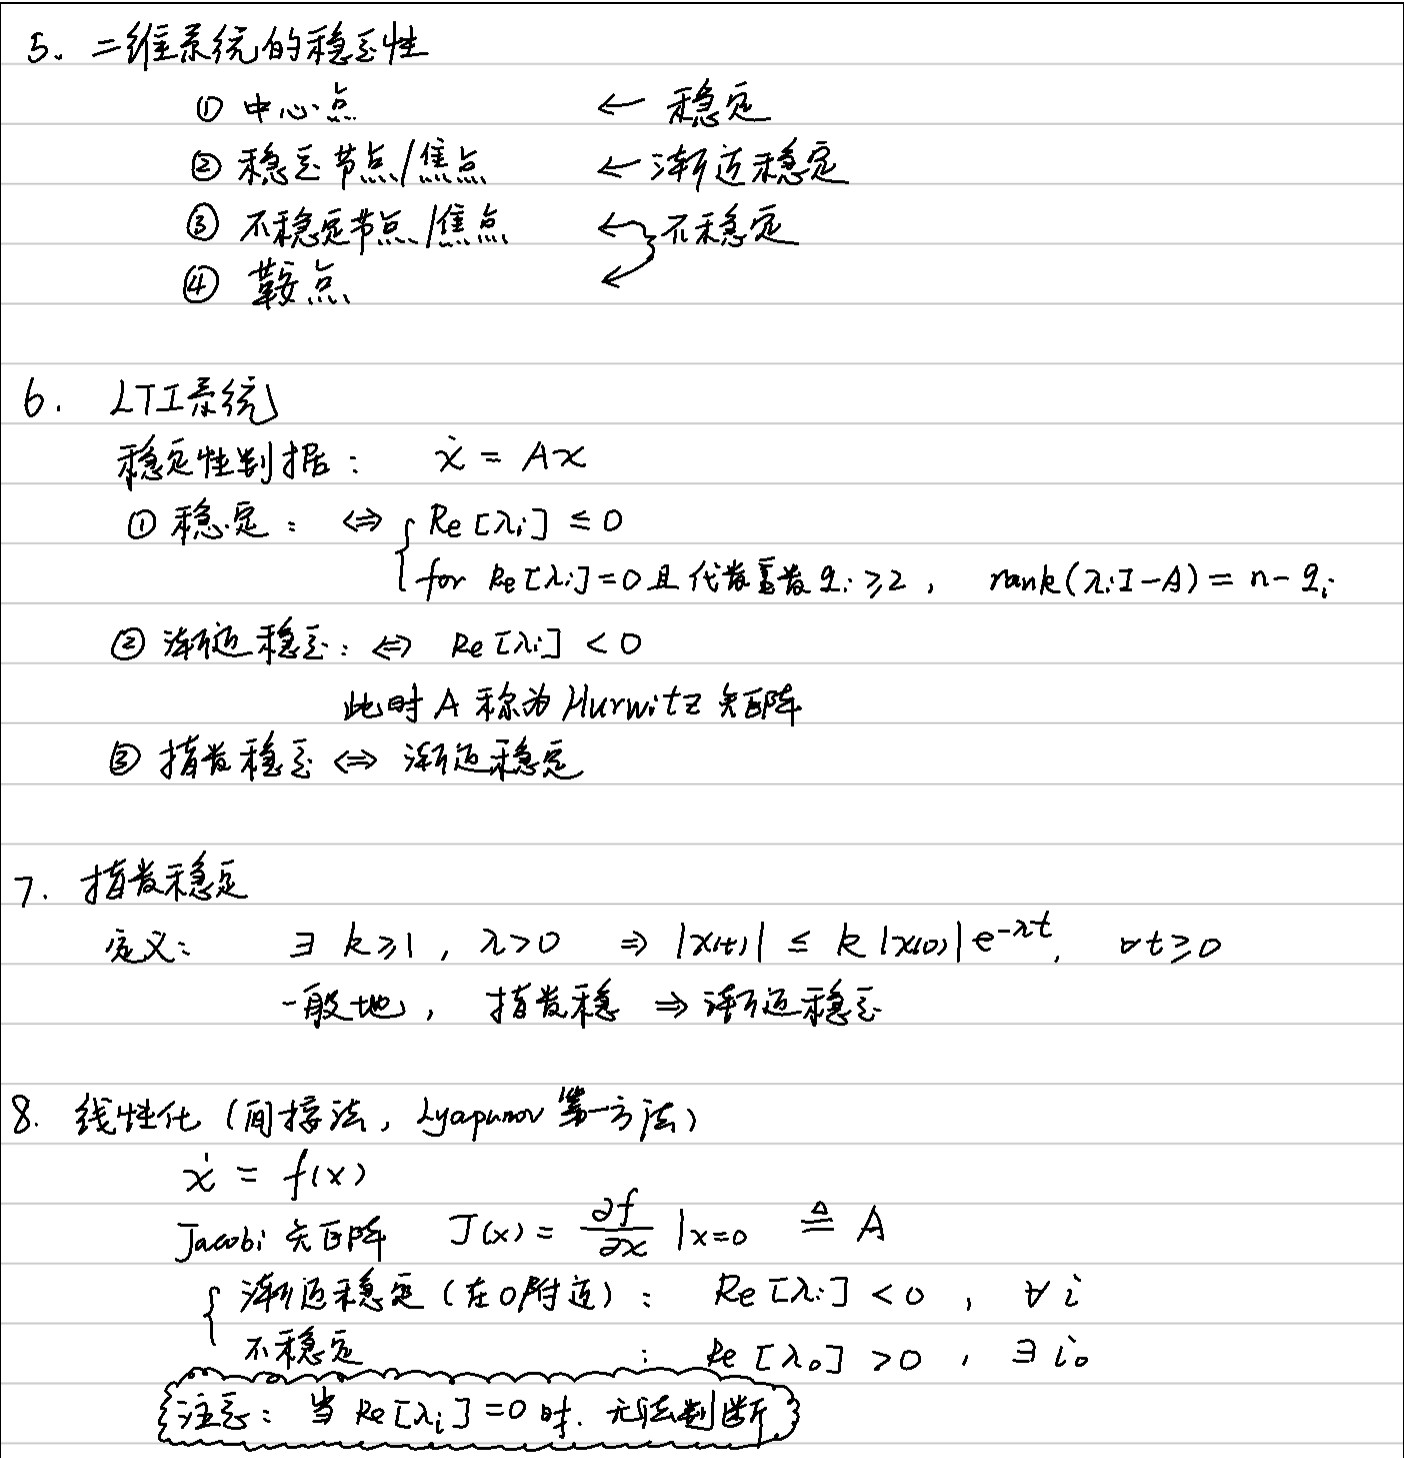 5. 二维系统的稳定性
① 中心点 ← 稳定
② 稳定节点/焦点 ← 渐近稳定
③ 不稳定节点/焦点 ← 不稳定
④ 鞍点 ←
6. LTI系统
稳定性判据: ẋ = Ax
① 稳定: ⇔ { Re[λi] ≤ 0
for Re[λi]=0 且代数重数 qi ≥2, rank(λiI-A) = n-qi
② 渐近稳定: ⇔ Re[λi] < 0
此时 A 称为 Hurwitz 矩阵
③ 指数稳定 ⇔ 渐近稳定
7. 指数稳定
定义: ∃ k≥1, λ>0 ⇒ |x(t)| ≤ k|x(0)|e^{-λt}, ∀t≥0
一般地, 指数稳 ⇒ 渐近稳定
8. 线性化 (间接法, Lyapunov 第一方法)
ẋ = f(x)
Jacobi 矩阵 J(x) = ∂f/∂x |x=0 ≜ A
{ 渐近稳定 (在0附近): Re[λi] < 0, ∀i
不稳定 : Re[λ0] > 0, ∃i0
注意: 当 Re[λi]=0 时. 无法判断